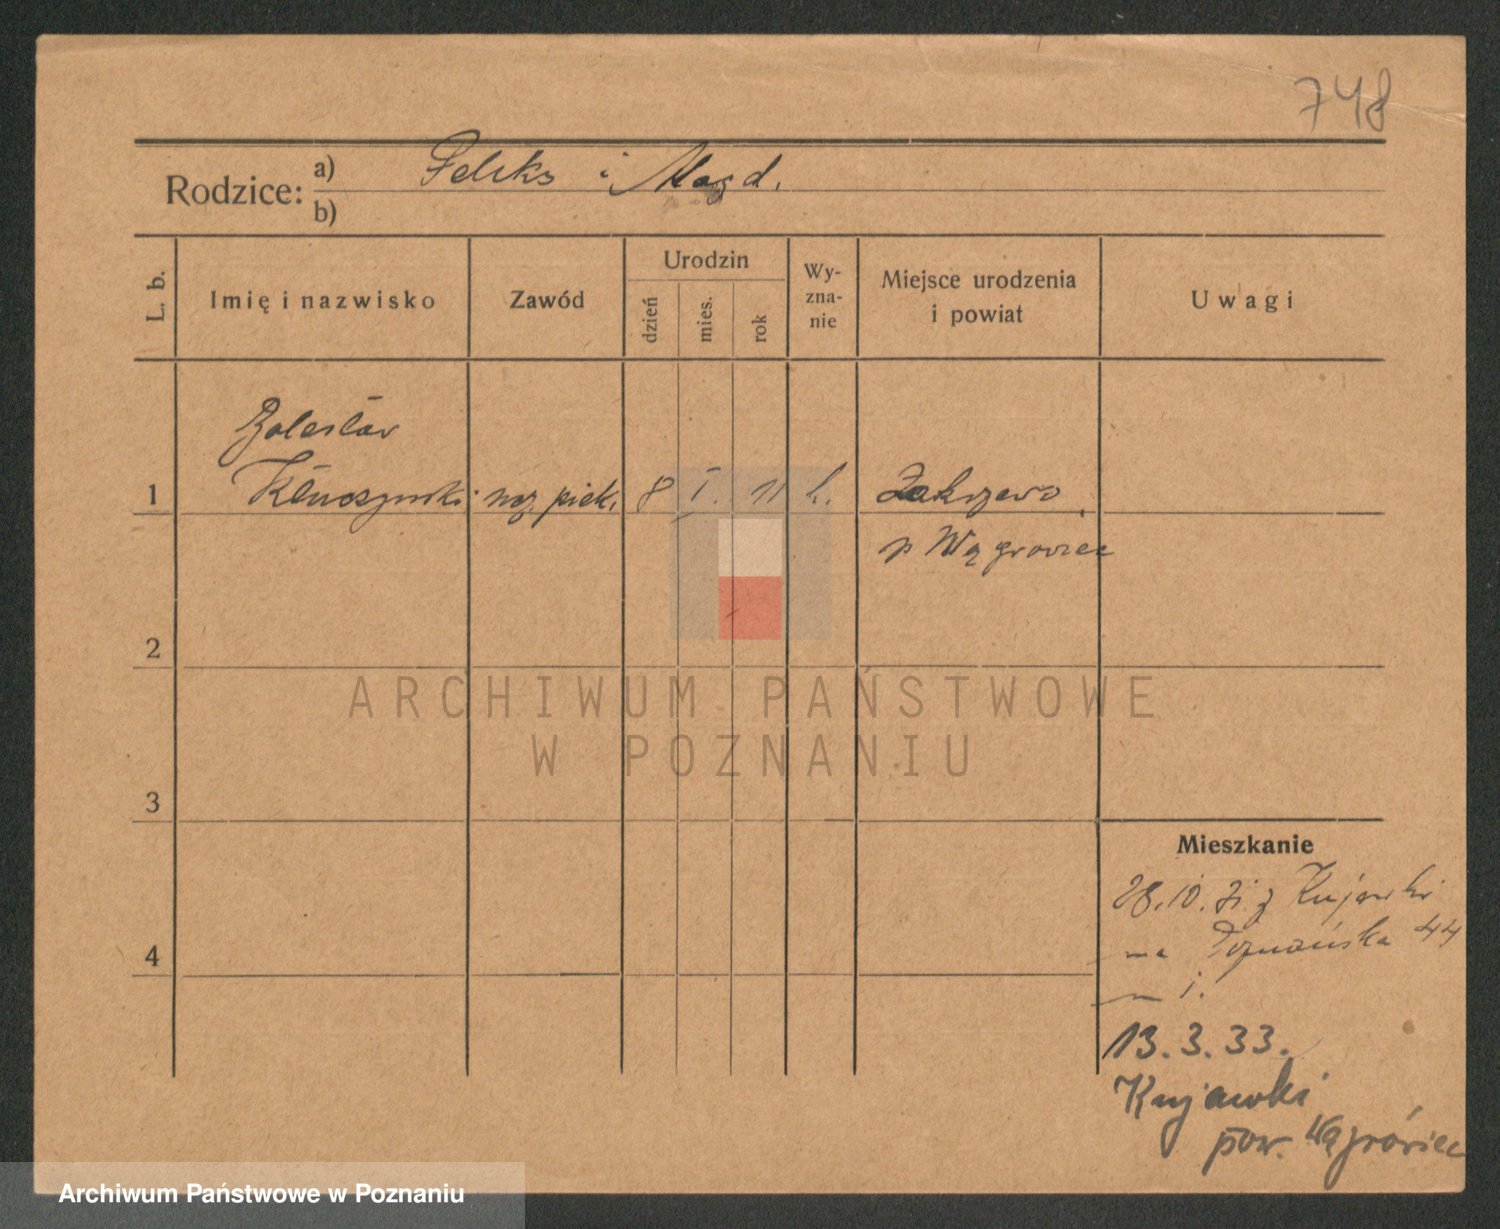 748
Rodzice: a) Feliks i Magd.
b)
L. b.
Imię i nazwisko
Zawód
Urodzin
dzień
mies.
rok
Wy-
zna-
nie
Miejsce urodzenia
i powiat
Uwagi
Bolesław
1 8 I. 11 k. Zakrzewo
p Wągrowiec
2
3
4
Mieszkanie
28.10. z Kujawki
na Poznańska 44
m 1.
13.3.33.
Kujawki
pow. Wągrówiec
ARCHIWUM PAŃSTWOWE
W POZNANIU
Archiwum Państwowe w Poznaniu